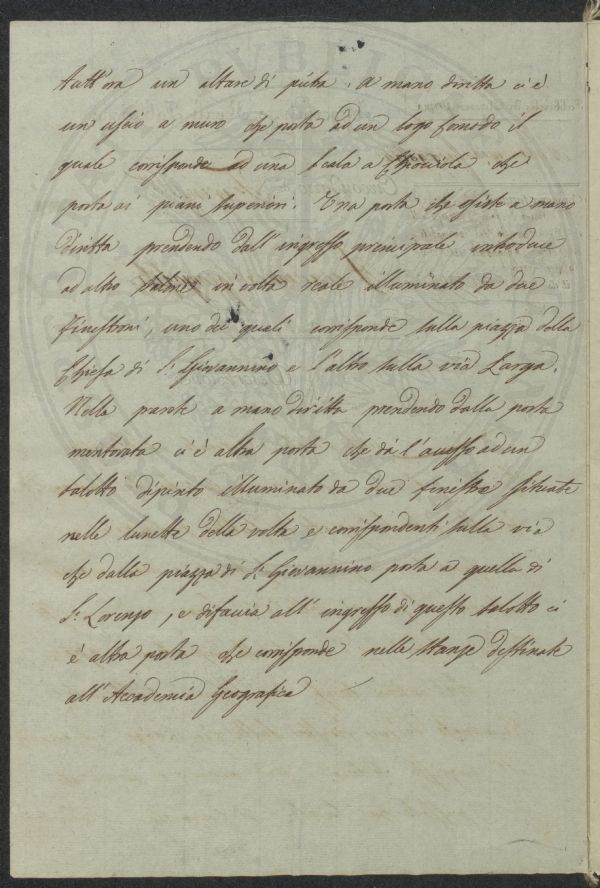 tutt'ora un altare di pietra. A mano diritta ci è
un uscio a muro che porta ad un logo comodo il
quale corrisponde ad una scala a Chiociola che
porta ai piani superiori. Una porta che esiste a mano
diritta prendendo dall'ingresso principale introduce
ad altro salone in volta reale illuminato da due
Finestroni, uno dei quali corrisponde sulla piazza della
Chiesa di S. Giovannino e l'altro sulla via Larga.
Nella parete a mano diritta prendendo dalla porta
mentovata ci è altra porta che dà l'accesso ad un
salotto dipinto illuminato da due finestre situate
nelle lunette della volta e corrispondenti sulla via
che dalla piazza di S. Giovannino porta a quella di
S. Lorenzo, e difacia all'ingresso di questo salotto ci
è altra porta che corrisponde nelle stanze destinate
all'Accademia Geografica